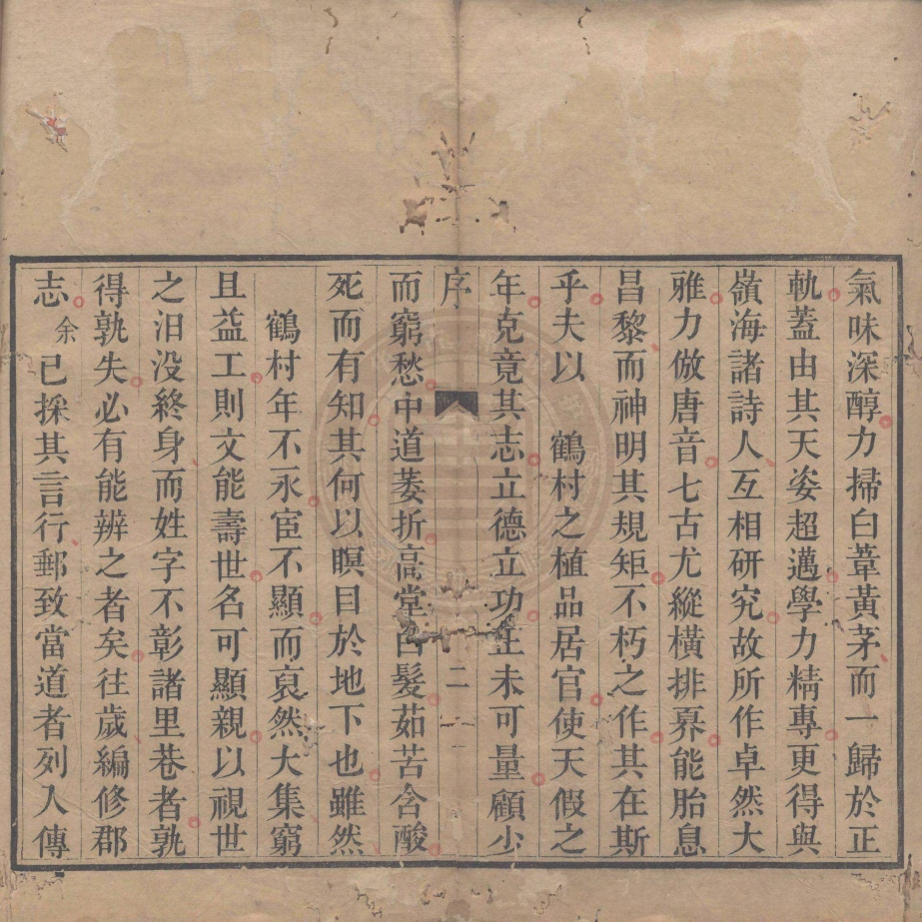 氣味深醇力掃白葦黃茅而一歸於正
軌蓋由其天姿超邁學力精專更得與
嶺海諸詩人互相研究故所作卓然大
雅力倣唐音七古尤縱橫排奡能胎息
昌黎而神明其規矩不朽之作其在斯
乎夫以 鶴村之植品居官使天假之
年克竟其志立德立功正未可量顧少
序 二
而窮愁中道萎折高堂白髮茹苦含酸
死而有知其何以瞑目於地下也雖然
鶴村年不永宦不顯而裒然大集窮
且益工則文能壽世名可顯親以視世
之汨没終身而姓字不彰諸里巷者孰
得孰失必有能辨之者矣往歲編修郡
志余已採其言行郵致當道者列入傳